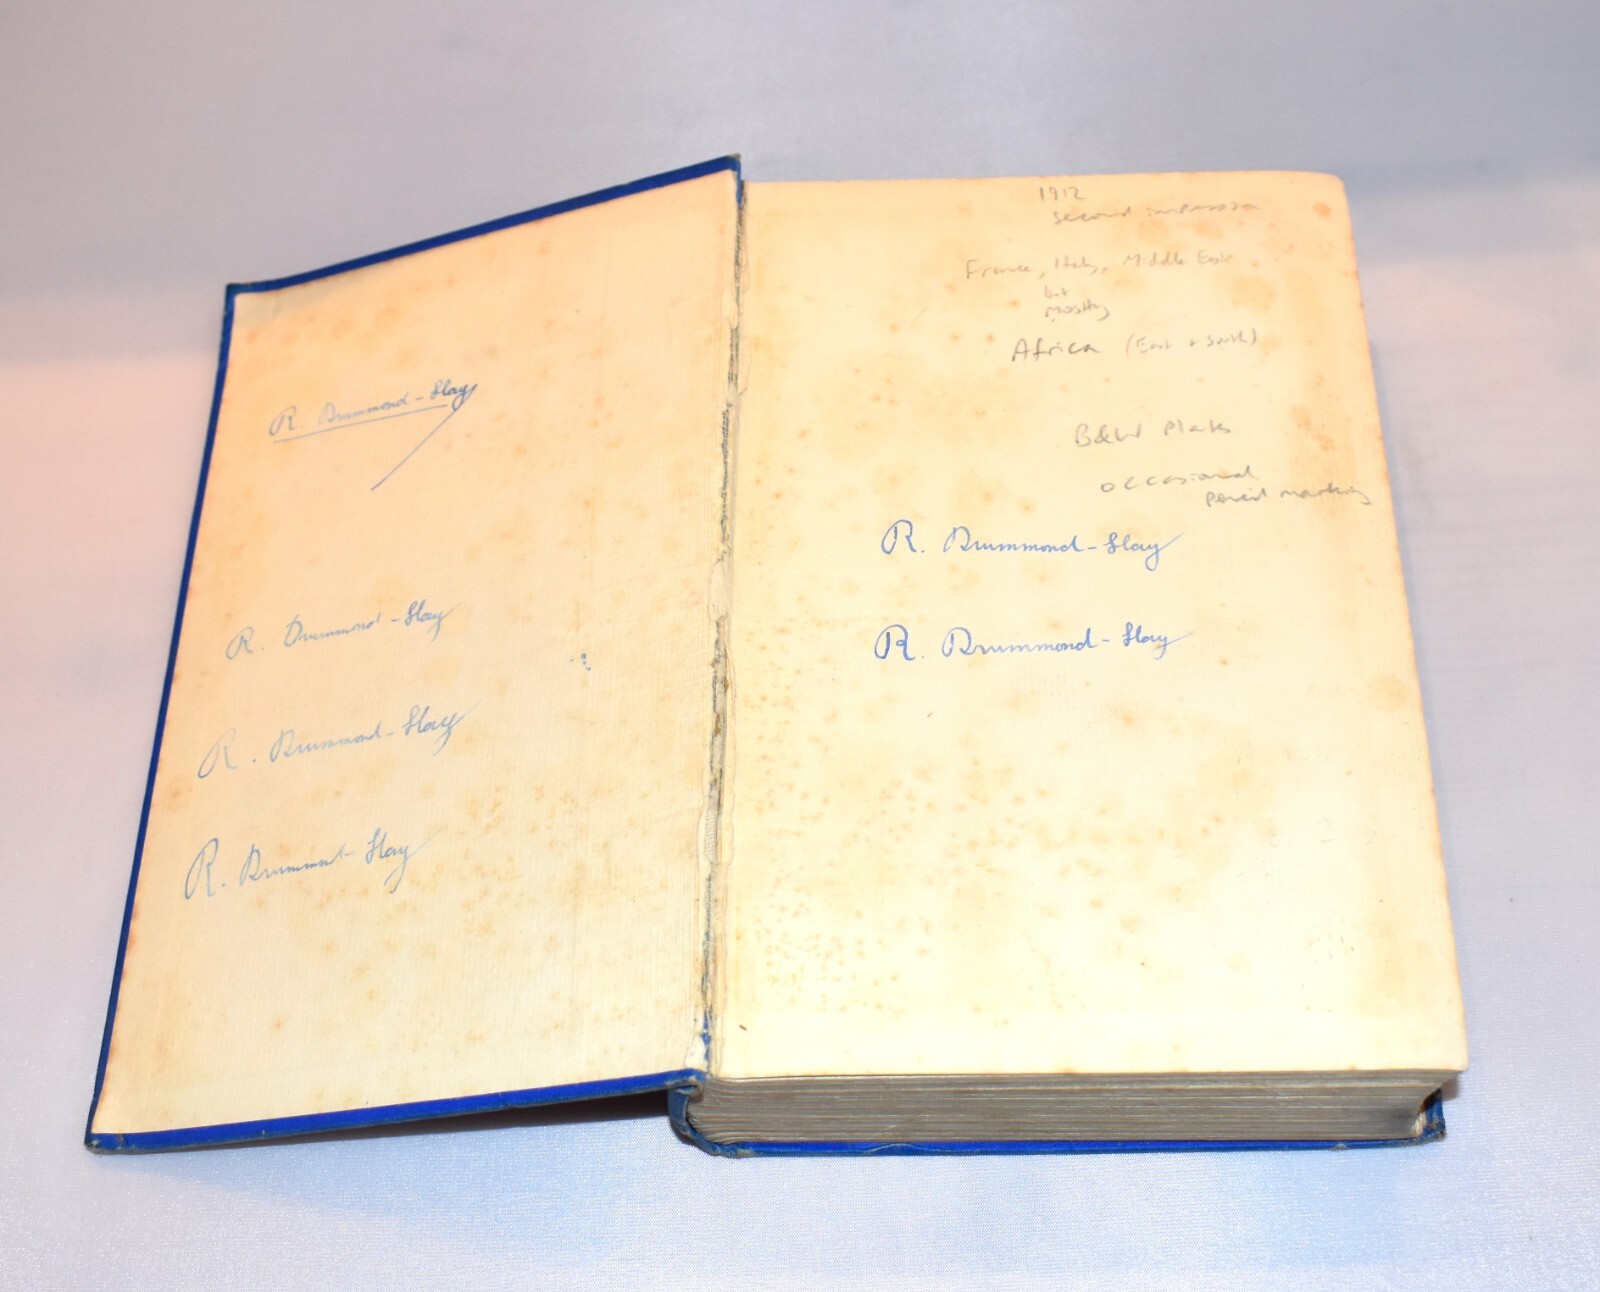 R. Drummond-Hay
R. Drummond-Hay
R. Drummond-Hay
R. Drummond-Hay
1912
second impression
France, Italy, Middle East
but
mostly
Africa (East & South)
B&W Plates
occasional
pencil marking
R. Drummond-Hay
R. Drummond-Hay